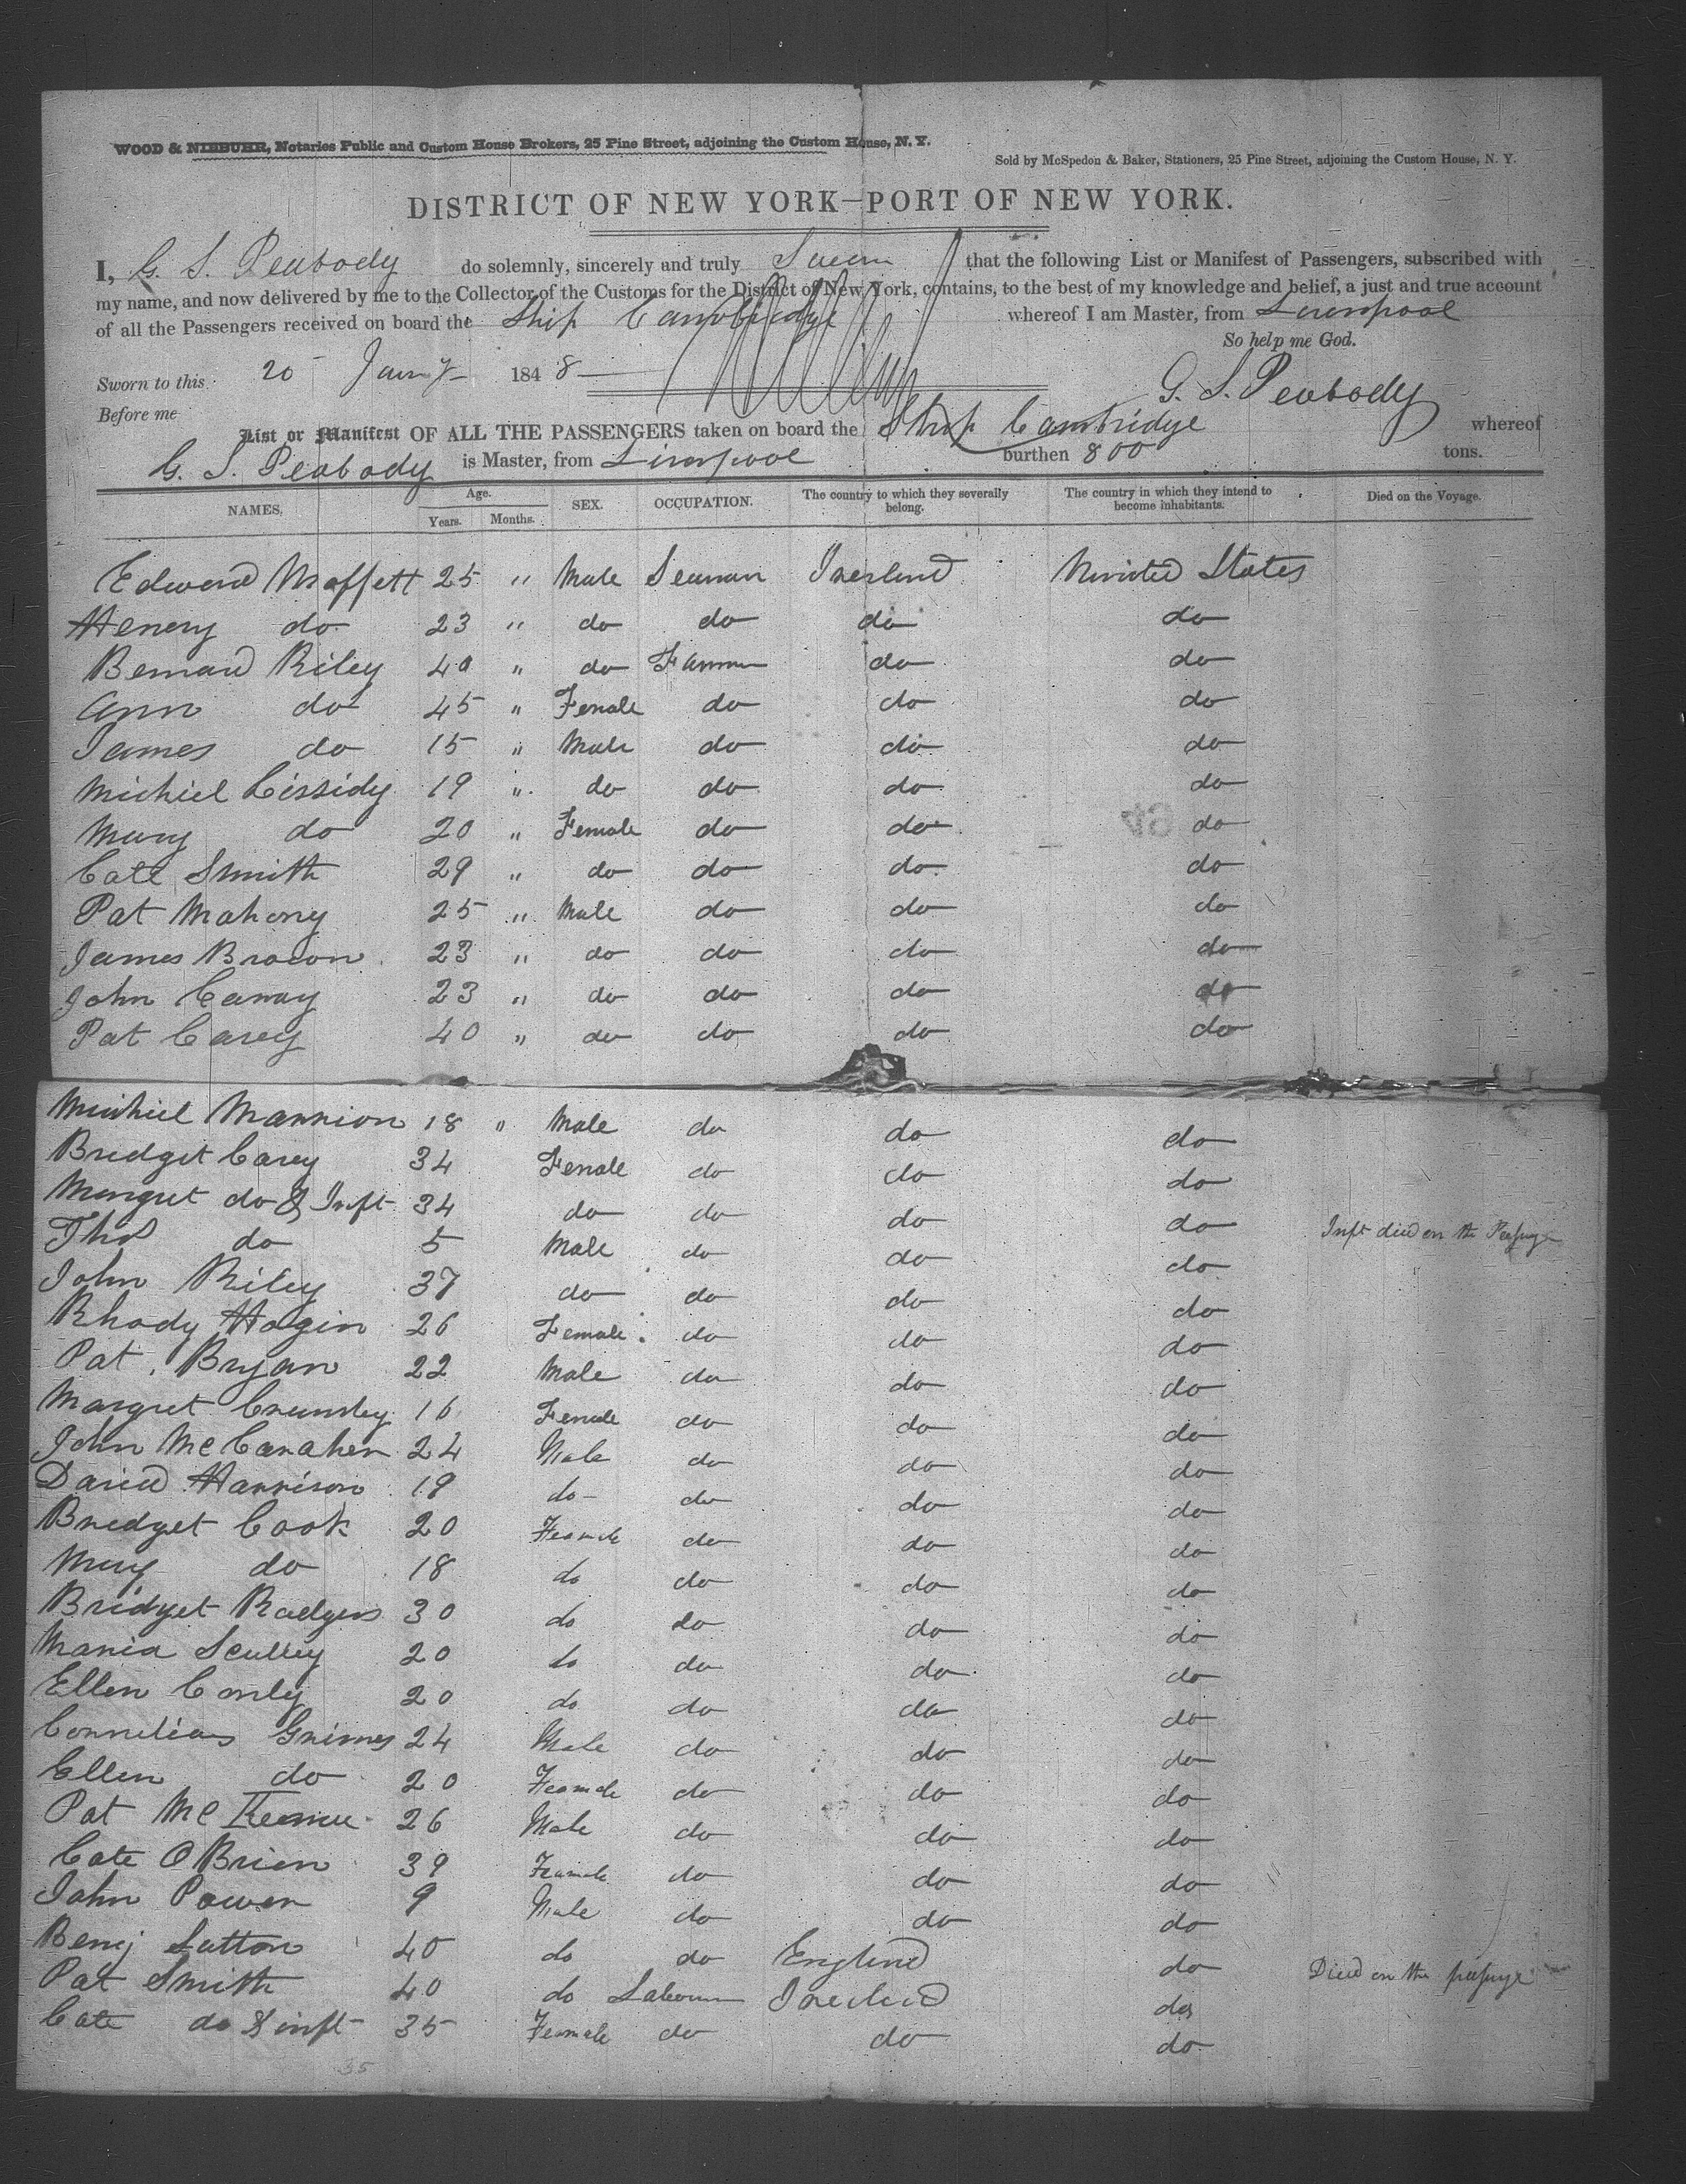 WOOD & NIEBUHR, Notaries Public and Custom House Brokers, 25 Pine Street, adjoining the Custom House, N. Y.
Sold by McSpedon & Baker, Stationers, 25 Pine Street, adjoining the Custom House, N. Y.
DISTRICT OF NEW YORK—PORT OF NEW YORK.
I, G. S. Peabody do solemnly, sincerely and truly Swear that the following List or Manifest of Passengers, subscribed with
my name, and now delivered by me to the Collector of the Customs for the District of New York, contains, to the best of my knowledge and belief, a just and true account
of all the Passengers received on board the Ship Cambridge whereof I am Master, from Liverpool
So help me God.
Sworn to this 20 Jany 1848
G. S. Peabody
Before me
List or Manifest OF ALL THE PASSENGERS taken on board the Ship Cambridge whereof
G. S. Peabody is Master, from Liverpool burthen 800 tons.
NAMES. Age. Years. Months. SEX. OCCUPATION. The country to which they severally belong. The country in which they intend to become inhabitants. Died on the Voyage.
Edward Moffett 25 " Male Seaman Ireland United States
Henery do 23 " do do do do
Bernard Riley 40 " do Farmer do do
Ann do 45 " Female do do do
James do 15 " Male do do do
Michiel Cissidy 19 " do do do do
Mary do 20 " Female do do do
Cate Smith 29 " do do do do
Pat Mahony 25 " Male do do do
James Brown 23 " do do do do
John 23 " do do do do
Pat Carey 40 " do do do do
Michiel Mannion 18 " Male do do do
Bridget Carey 34 Female do do do
Margret do & Inft 34 do do do do Inft died on the Passage
Thos do 5 Male do do do
John Riley 37 do do do do
Rhody Hagin 26 Female do do do
Pat Bryan 22 Male do do do
Margret 16 Female do do do
John McCanahen 24 Male do do do
David Harrison 19 do do do do
Bredget Cook 20 Feamale do do do
Mary do 18 do do do do
Bridget Radgers 30 do do do do
Maria Sculley 20 do do do do
Ellen Conly 20 do do do do
Cornelious Grimes 24 Male do do do
Ellen do 20 Feamale do do do
Pat Mc 26 Male do do do
Cate O Brien 39 Feamale do do do
John Power 9 Male do do do
Benj Sutton 40 do do England do Died on the passage
Pat Smith 40 do Labourer Ireland do
Cate do & inft 35 Female do do do
35